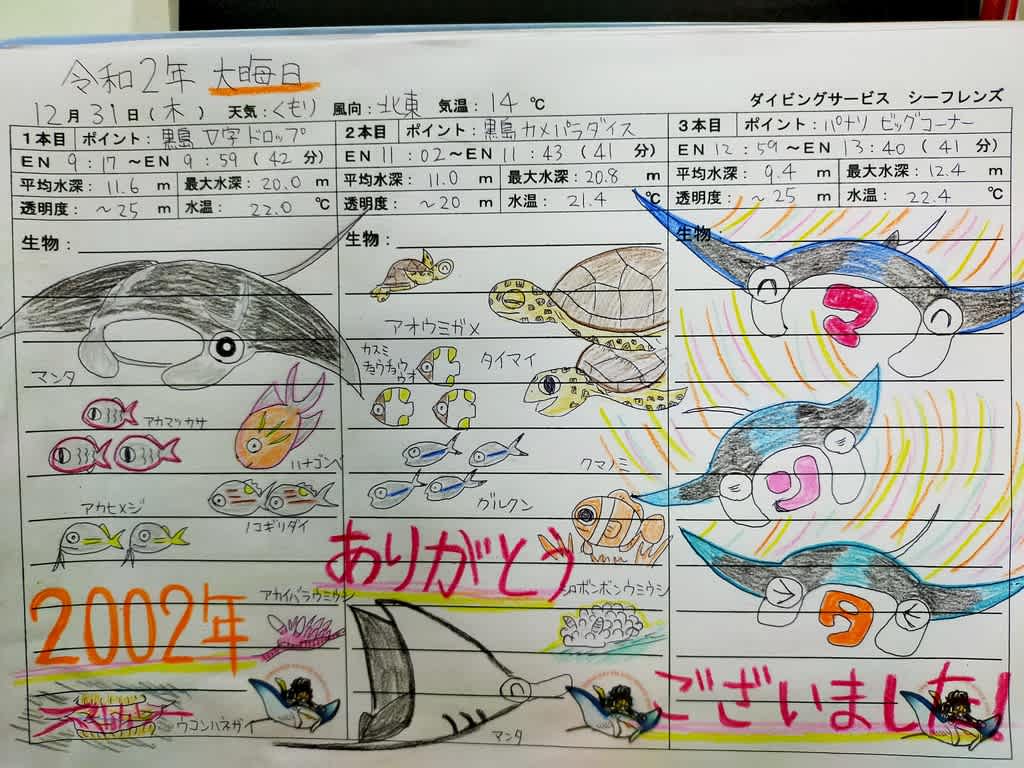 令和2年 大晦日
12月31日(木) 天気:くもり 風向:北東 気温:14℃
ダイビングサービス シーフレンズ
1本目 ポイント:黒島 V字ドロップ
EN 9:17～EN 9:59(42分)
平均水深:11.6m 最大水深:20.0m
透明度:～25m 水温:22.0℃
生物:
マンタ
アカマツカサ
ハナゴンベ
アカヒメジ
ノコギリダイ
2002年
アカイバラウミウシ
ウコンハネガイ
2本目 ポイント:黒島 カメパラダイス
EN 11:02～EN 11:43(41分)
平均水深:11.0m 最大水深:20.8m
透明度:～20m 水温:21.4℃
生物:
アオウミガメ
タイマイ
カスミ
チョウチョウ
ウオ
クマノミ
グルクン
ありがとう
シロボンボンウミウシ
マンタ
3本目 ポイント:パナリ ビッグコーナー
EN 12:59～EN 13:40(41分)
平均水深:9.4m 最大水深:12.4m
透明度:～25m 水温:22.4℃
生物:
マ
リ
タ
ございました!